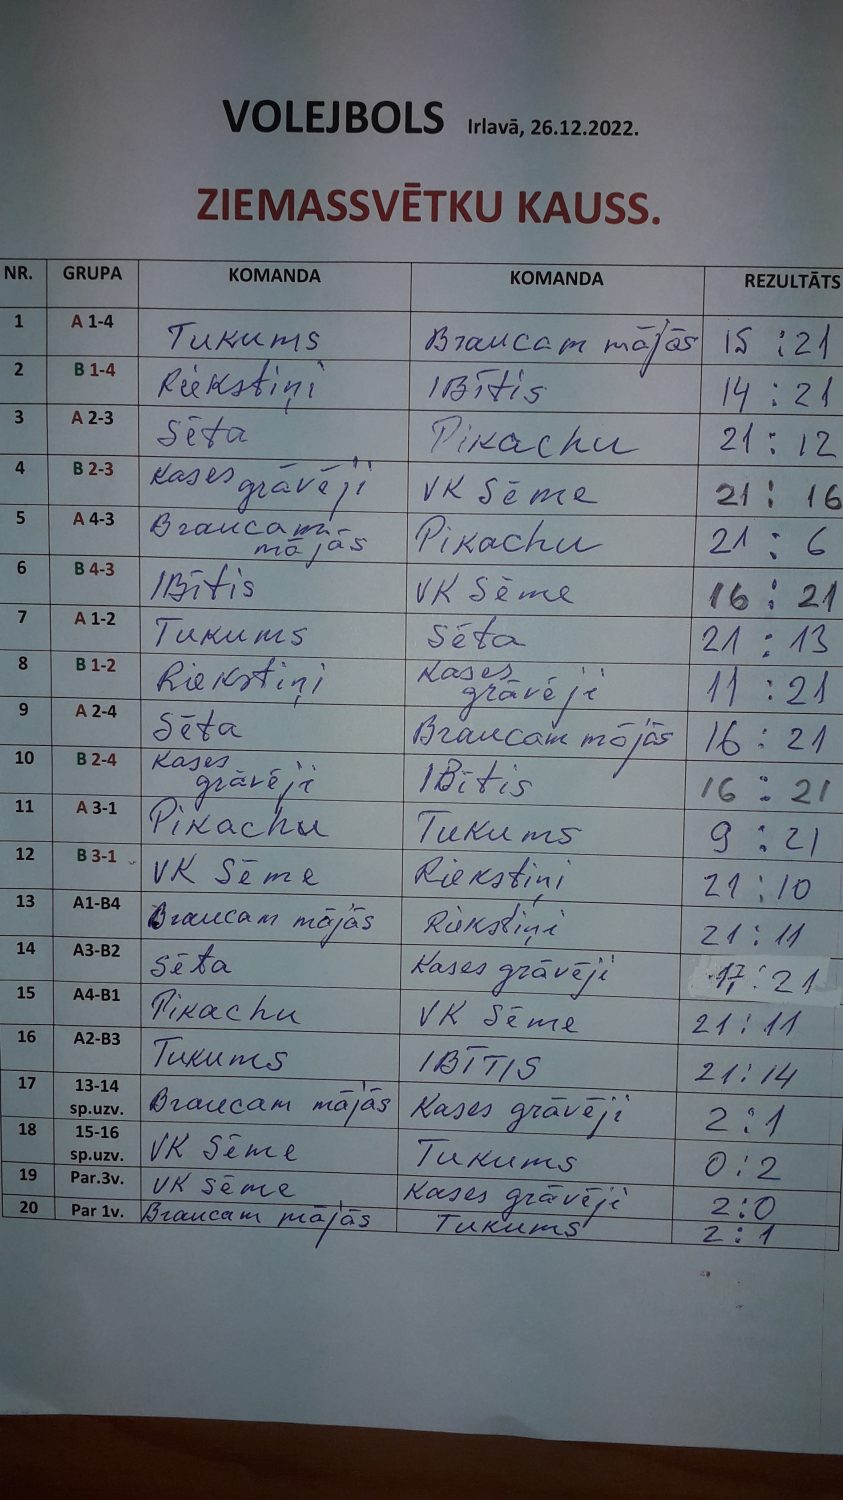 VOLEJBOLS Irlavā, 26.12.2022.
ZIEMASSVĒTKU KAUSS.
NR. GRUPA KOMANDA KOMANDA REZULTĀTS
1 A 1-4 Tukums Braucam mājās 15 : 21
2 B 1-4 Riekstiņi IBītis 14 : 21
3 A 2-3 Sēta Pikachu 21 : 12
4 B 2-3 Kases grāvēji VK Sēme 21 : 16
5 A 4-3 Braucam mājās Pikachu 21 : 6
6 B 4-3 IBītis VK Sēme 16 : 21
7 A 1-2 Tukums Sēta 21 : 13
8 B 1-2 Riekstiņi Kases grāvēji 11 : 21
9 A 2-4 Sēta Braucam mājās 16 : 21
10 B 2-4 Kases grāvēji IBītis 16 : 21
11 A 3-1 Pikachu Tukums 9 : 21
12 B 3-1 VK Sēme Riekstiņi 21 : 10
13 A1-B4 Braucam mājās Riekstiņi 21 : 11
14 A3-B2 Sēta Kases grāvēji 17 : 21
15 A4-B1 Pikachu VK Sēme 21 : 11
16 A2-B3 Tukums IBĪTIS 21 : 14
17 13-14 sp.uzv. Braucam mājās Kases grāvēji 2 : 1
18 15-16 sp.uzv. VK Sēme Tukums 0 : 2
19 Par.3v. VK Sēme Kases grāvēji 2 : 0
20 Par 1v. Braucam mājās Tukums 2 : 1